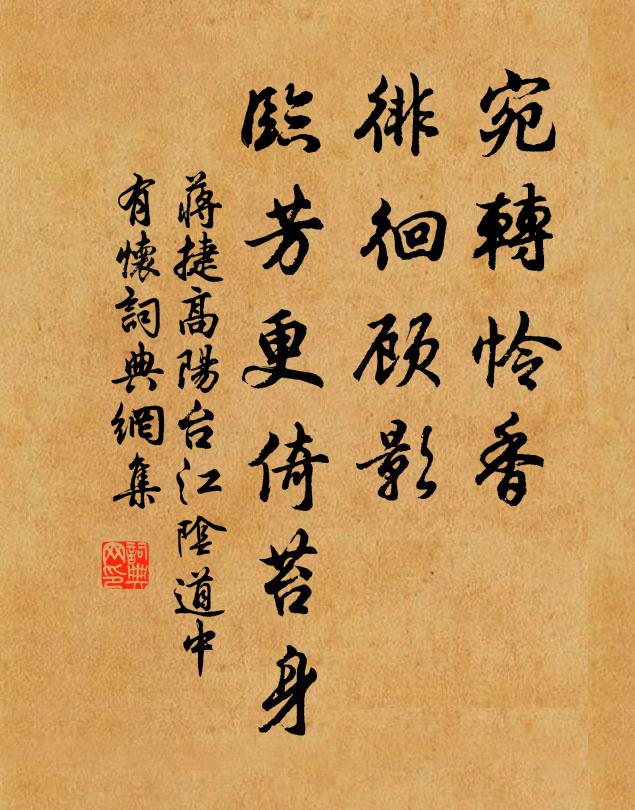 宛轉怜香
徘徊顾影
臨芳更倚苔身
蔣捷高陽台江陰道中
有懷詞典網集
詞典网印